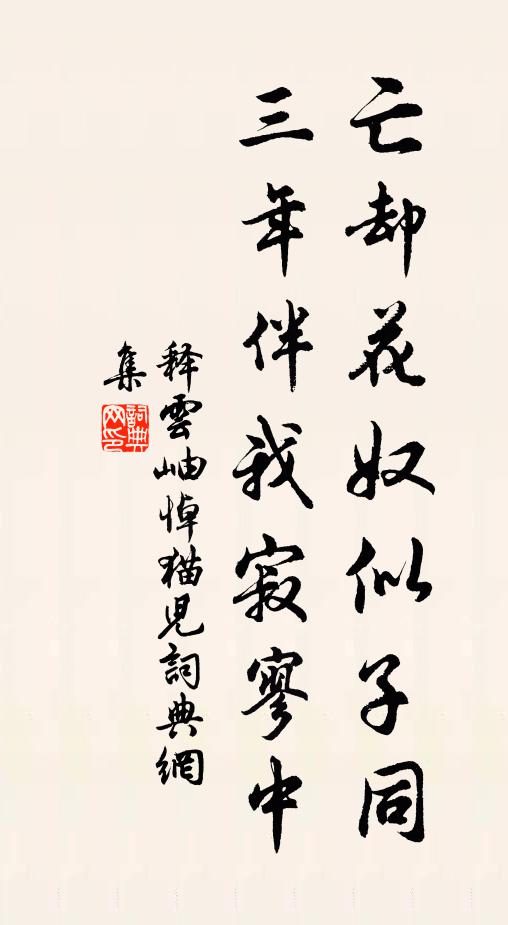 亡却花奴似子同
三年伴我寂寥中
释雲岫悼猫兒詞典網
集
詞典网印